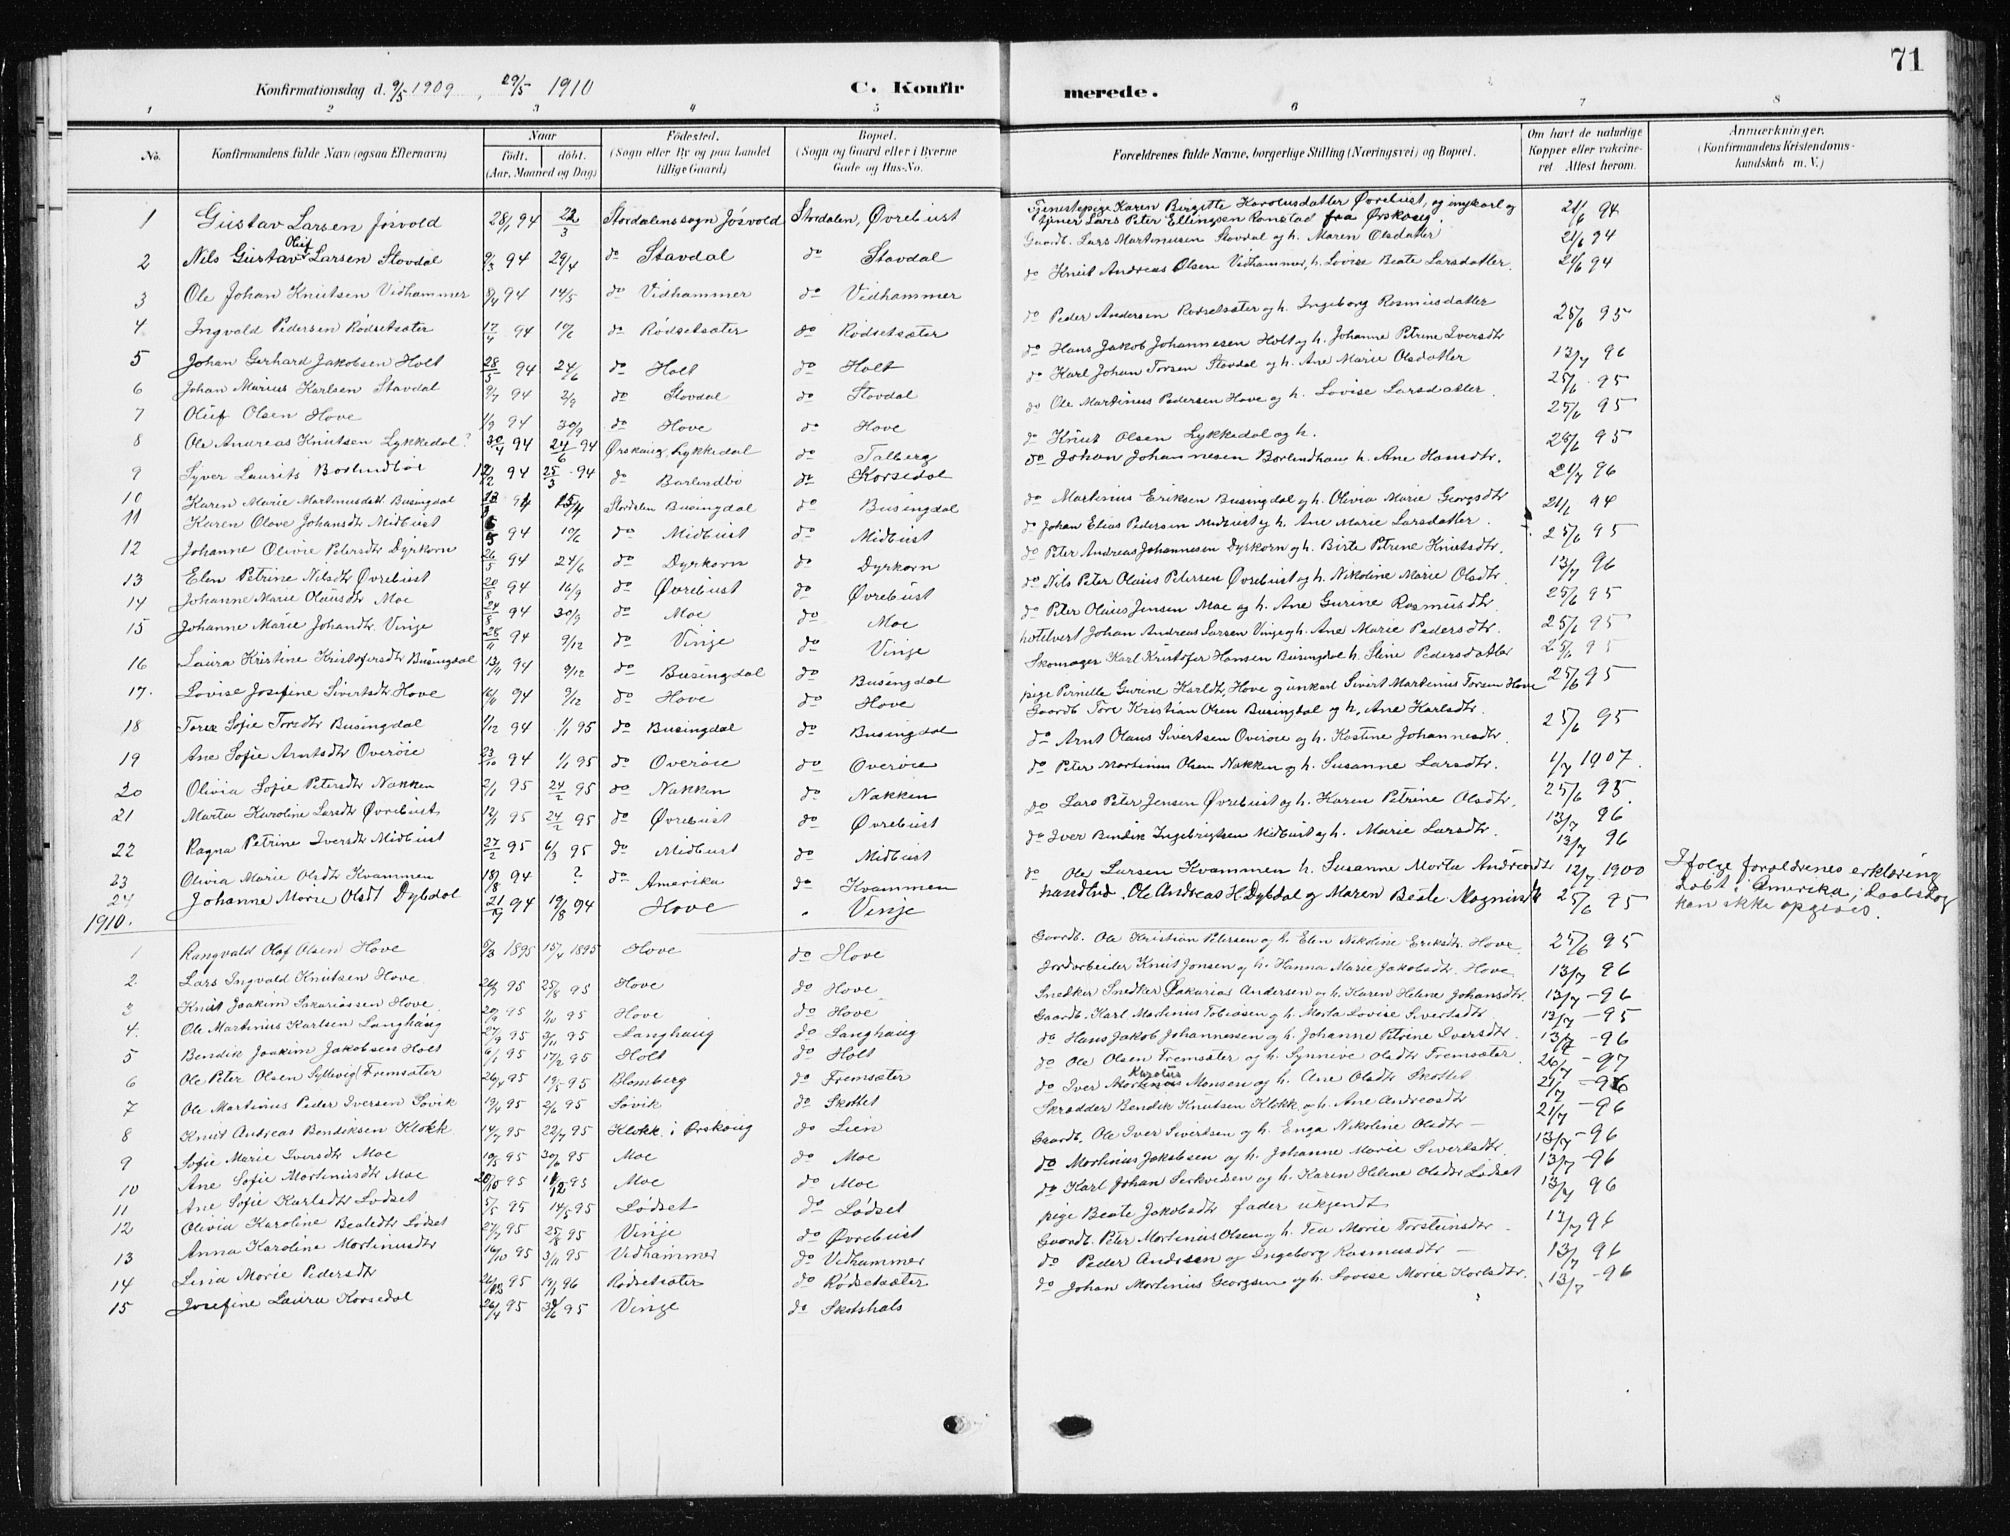 71
Konfirmationsdag d. 9/5 1909, 29/5 1910 C. Konfirmerede.
1 2 3 4 5 6 7 8
No. Konfirmandens fulde Navn (ogsaa Efternavn) Naar født. døbt. (Aar, Maaned og Dag) Fødested. (Sogn eller By og paa Landet tillige Gaard) Bopæl. (Sogn og Gaard eller i Byerne Gade og Hus-No. Forældrenes fulde Navne, borgerlige Stilling (Næringsvei) og Bopæl. Om havt de naturlige Kopper eller vakcineret Attest herom. Anmærkninger. (Konfirmandens Kristendomskundskab m. V.)
1 Gustav Larsen Jøsvold 28/1 94 22/3 Stordalenssogn Jøsvold Stordalen, Øvrebust Tjenestepige Karen Birgitte Karolusdatter Øvrebust, og ungkarl og tjener Lars Peter Ellingsen Ramstad fra Ørskoug. 21/6 94
2 Nils Gustav Oluf Larsen Stovdal 9/3 94 29/4 do Stavdal do Stavdal Gaardb. Lars Martinusen Stovdal og h. Maren Olsdatter 21/6 94
3 Ole Johan Knutsen Vidhammer 8/4 94 14/5 do Vidhammer do Vidhammer do Knut Andreas Olsen Vidhammer, h. Lovise Beate Larsdatter. 21/6 94
4 Ingvald Pedersen Rødsetsæter 17/4 94 10/6 do Rødsetsæter do Rødsetsæter do Peder Andersen Rødsetsæter og h. Ingeborg Rasmusdatter 25/6 95
5 Johan Gerhard Jakobsen Holt 28/5 94 24/6 do Holt do Holt do Hans Jakob Johannesen Holt og h. Johanne Petrine Iversdtr 13/7 96
6 Johan Marius Karlsen Stavdal 9/7 94 2/9 do Stovdal do Stovdal do Karl Johan Torsen Stovdal og h. Ane Marie Olsdatter 25/6 95
7 Oluf Olsen Hove 1/9 94 30/9 do Hove do Hove do Ole Martinus Pedersen Hove og h. Lovise Larsdatter. 25/6 95
8 Ole Andreas Knutsen Lykkedal? 30/4 94 24/6 94 Ørskaug, Lykkedal do Talberg do Knut Olsen Lykkedal og h. 25/6 95
9 Syver Laurits Barlindbø 12/2 94 25/3 94 do Barlindbø do Korsedal do Johan Johannesen Barlindhaug h. Ane Hansdtr. 21/7 96
10 Karen Marie Martinusdatt Busingdal 94 15/4 Stordalen Busingdal do Busingdal do Martinus Eriksen Busingdal og h. Olivia Marie Georgsdtr 21/6 94
11 Karen Olave Johansdtr Midbust 6/5 94 10/6 do Midbust do Midbust do Johan Elias Pedersen Midbust og h. Ane Marie Larsdatter. 25/6 95
12 Johanne Olivie Petersdtr Dyrkorn 26/5 94 24/6 do Dyrkorn do Dyrkorn do Peter Andreas Johannesen Dyrkorn og h. Birte Petrine Knutsdtr. 13/7 96
13 Elen Petrine Nilsdtr Øvrebust 20/8 94 16/9 do Øvrebust do Øvrebust do Nils Peter Olaus Petersen Øvrebust og h. Nikoline Marie Olsdtr 25/6 95
14 Johanne Marie Olausdtr Moe 24/8 94 30/9 do Moe do Moe do Peter Olaus Jensen Moe og h. Ane Gurine Rasmusdtr. 25/6 95
15 Johanne Marie Johandtr. Vinje 28/11 94 9/12 do Vinje do Vinje hotelvert Johan Andreas Larsen Vinje og h. Ane Marie Pedersdtr. 25/6 95
16 Laura Kristine Kristofersdtr Busingdal 13/11 94 9/12 do Busingdal do Busingdal Skomager Karl Kristofer Hansen Busingdal h. Stine Pedersdatter
17. Lovise Josefine Sivertsdtr Hove 16/11 94 9/12 do Hove do Hove pige Pernille Gurine Karldtr, Hove g unkarl Sivert Martinus Torsen Hove 25/6 95
18 Torex Sofie Torsdtr Busingdal 1/12 94 1/1 95 do Busingdal do Busingdal Gaardb Tore Kristian Olsen Busingdal og h, Ane Karlsdtr. 25/6 95
19 Ane Sofie Arntsdtr Overøie 23/10 94 1/1 95 do Overøie do Overøie do Arnt Olaus Sivertsen Overøie og h. Kastine Johannesdtr. 1/7 1907.
20 Olivia Sofie Petersdtr Nakken 2/1 95 24/2 95 do Nakken do Nakken do Peter Martinus Olsen Nakken og h. Susanne Larsdtr. 25/6 95.
21 Marta Karoline Larsdtr Øvrebust 12/1 95 24/2 95 do Øvrebust do Øvrebust do Lars Peter Jensen Øvrebust og h. Karen Petrine Olsdtr. 13/7 96
22 Ragna Petrine Iversdtr Midbust 27/2 95 6/3 95 do Midbust do Midbust do Iver Bendik Ingebrigtsen Midbust og h. Marie Larsdtr. 13/7 96
23 Olivia Marie Olsdtr Kvammen 18/8 94 ? do Amerika do Kvammen do Ole Larsen Kvammen h. Susanne Marta Andreasdtr 12/7 1900 Ifølge forældrenes erklæring døbt i Amerika; daabsdag kan ikke opgives.
24 Johanne Marie Olsdt Dybdal 21/9 94 19/8 94 Hove " Vinje handlsb. Ole Andreas H. Dybdal og Maren Beate Magnusdtr 25/6 95
1910.
1 Rangvald Olaf Olsen Hove 9/3 1895 15/4 1895 Hove do Hove Gaardb. Ole Kristian Petersen og h. Elen Nikoline Eriksdtr. Hove 25/6 95
2 Lars Ingvald Knutsen Hove 95 25/8 95 Hove do Hove Jordarbeider Knut Jonsen og h. Hanna Marie Jakobsdtr. Hove 13/7 96
3 Knut Joakim Sakariassen Hove 20/9 95 1/10 95 Hove do Hove Snedker Snedker Sakarias Andersen og h. Karen Helene Johansdtr. 13/7 -96
4. Ole Martinius Karlsen Langhaug 27/9 95 3/11 95 Langhaug do Langhaug Gaardb. Karl Martinus Tobiasen g h. Marta Lovise Sivertsdtr 13/7 -95
5 Bendik Joakim Jakobsen Holt 6/1 95 17/2 95 Holt do Holt do Hans Jakob Johannessen og h. Johanne Petrine Iversdtr. 13/7 -96
6 Ole Peter Olsen Syltevig (Fremsæter 26/4 95 19/5 95 Blomberg do Fremsæter do Ole Olsen Fremsæter og h. Synnive Olsdtr Fremsæter. -97
7 Ole Martinus Peder Iversen Søvik 19/4 95 2/6 95 Søvik do Skottet do Iver Karolus Monsen og h. Ane Olsdtr Skottet 21/7 -96
8 Knut Andreas Bendiksen Klokk 14/7 95 22/7 95 Klokk i Ørskoug do Lien Skrædder Bendik Knutsen Klokk og h. Ane Andreasdtr 21/7 -96
9 Sofie Marie Iversdtr Moe 19/5 95 30/6 95 Moe do Moe Gaardb. Ole Iver Sivertsen og h. Enga Nikoline Olsdtr — 13/7 -96
10 Ane Sofie Martinusdtr Moe 20/10 95 1/12 95 Moe do Moe do Martinus Jakobsen og h. Johanne Marie Sivertsdtr. 13/7 -96
11 Ane Sofie Karlsdtr Lødset 5/5 95 14/5 95 Lødset do Lødset do Karl Johan Serkvidsen og h. Karen Helene Olsdtr Lødset 13/7 96
12 Olivia Karoline Beatedtr Lødset 27/7 95 25/8 95 Vinje do Øvrebust pige Beate Jakobsdtr fader ukjendt 13/7 96
13 Anna Karoline Martinusdtr 16/10 95 3/11 95 Vidhammer do Vidhammer Gaardb. Peter Martinus Olsen og h. Tea Marie Torsteinsdtr. 13/7 96
14 Lina Marie Pedersdtr 26/12 95 19/1 96 Rødsetsæter do Rødsetsæter do Peder Andersen og Ingeborg Rasmusdtr — 13/7 96
15 Josefine Laura Korsedal 26/4 95 3/6 95 Vinje do Skotshals do Johan Martinus Georgsen og h. Lovise Marie Karlsdtr. 13/7 -96